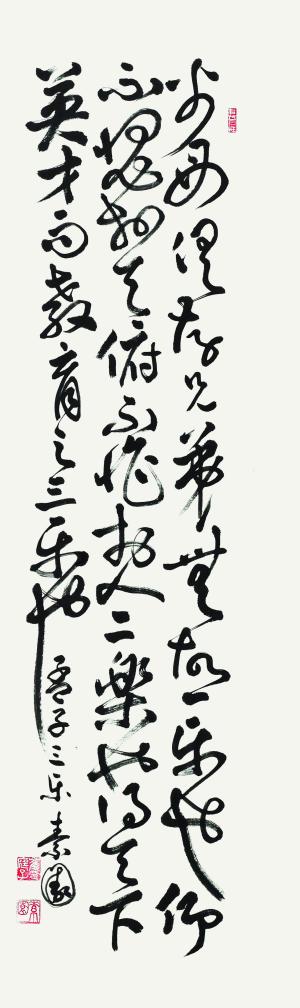 父母俱存兄弟無故一樂也仰
不愧於天俯不怍於人二樂也得天下
英才而教育之三樂也
孟子三樂 素園